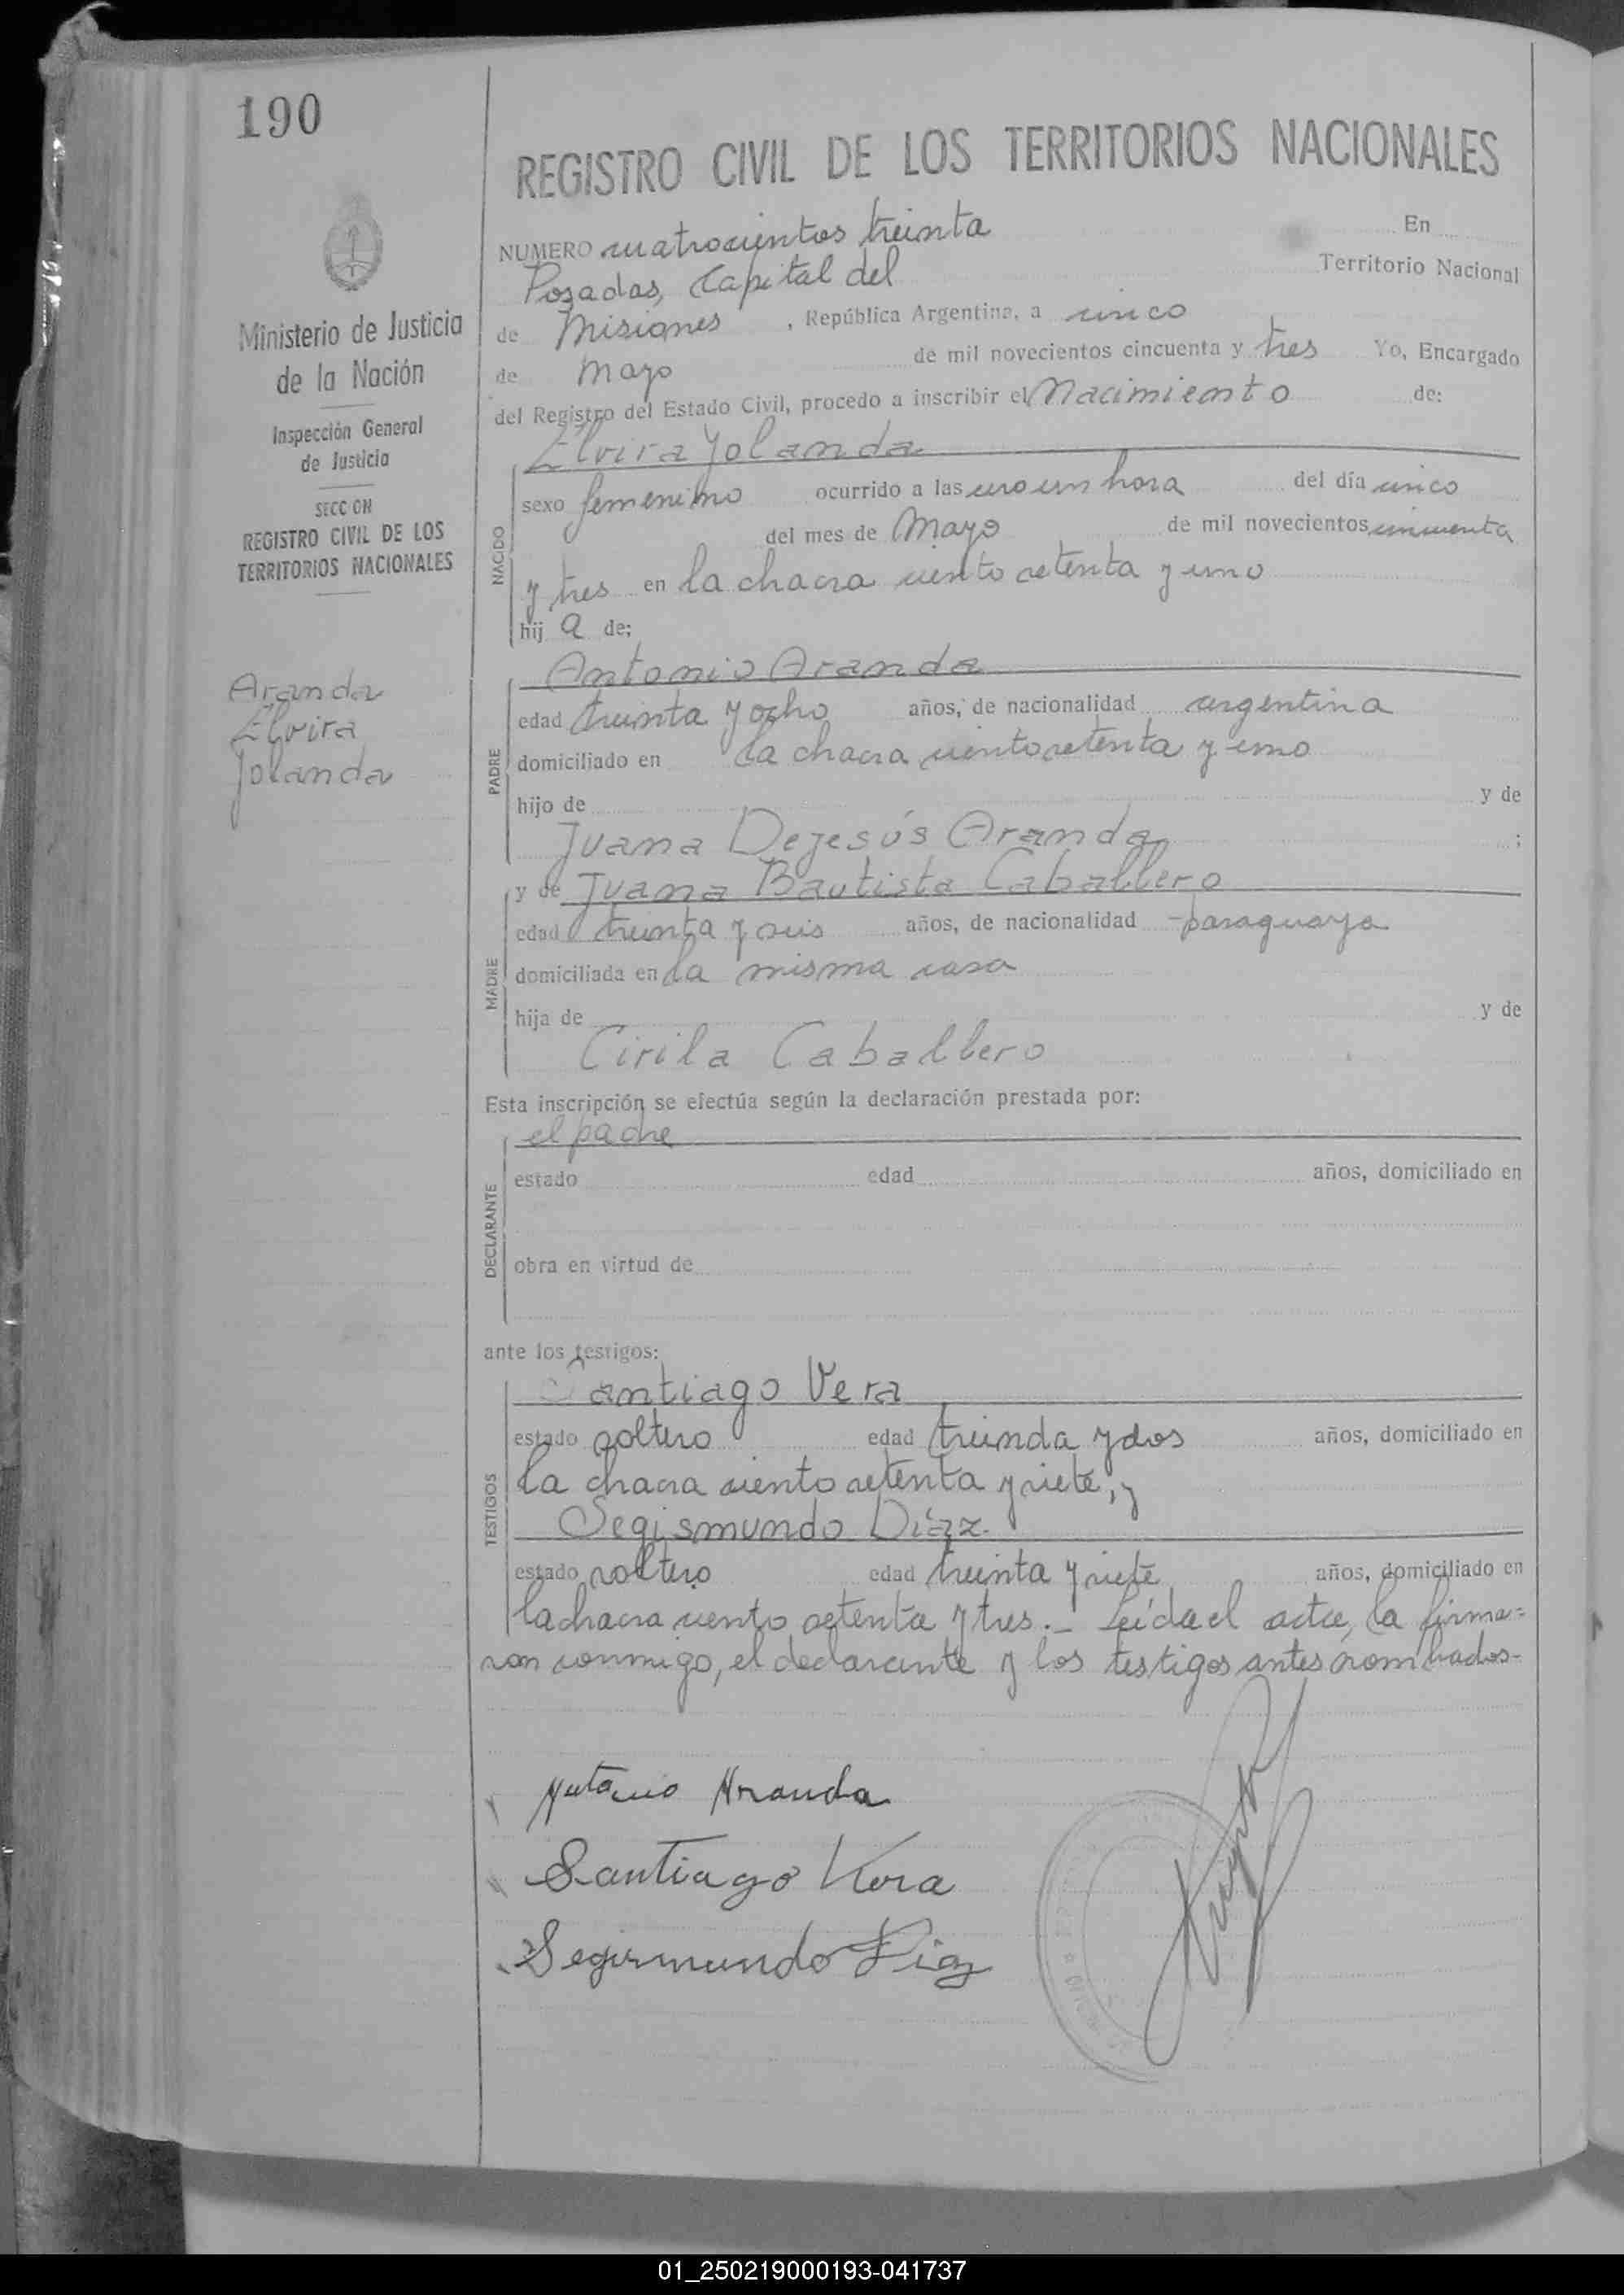 190
REGISTRO CIVIL DE LOS TERRITORIOS NACIONALES
Ministerio de Justicia
de la Nación
Inspección General
de Justicia
SECCION
REGISTRO CIVIL DE LOS
TERRITORIOS NACIONALES
Aranda
Elvira
Yolanda
NUMERO cuatrocientos treinta En
Posadas, Capital del Territorio Nacional
de Misiones, República Argentina, a cinco
de Mayo de mil novecientos cincuenta y tres Yo, Encargado
del Registro del Estado Civil, procedo a inscribir el Nacimiento de:
NACIDO
Elvira Yolanda
sexo femenino ocurrido a las hora del día cinco
del mes de Mayo de mil novecientos cincuenta
y tres en la chacra ciento setenta y uno
hij a de:
PADRE
Antonio Aranda
edad treinta y ocho años, de nacionalidad argentina
domiciliado en la chacra ciento setenta y uno
hijo de y de
Juana Dejesús Aranda ;
MADRE
y de Juana Bautista Caballero
edad treinta y seis años, de nacionalidad paraguaya
domiciliada en la misma casa
hija de y de
Cirila Caballero
Esta inscripción se efectúa según la declaración prestada por:
DECLARANTE
el padre
estado edad años, domiciliado en
obra en virtud de
ante los testigos:
TESTIGOS
Santiago Vera
estado soltero edad treinda y dos años, domiciliado en
la chacra ciento setenta y siete, y
Segismundo Díaz.
estado soltero edad treinta y siete años, domiciliado en
la chacra ciento setenta y tres.- Leída el acta, la firma=
ron conmigo, el declarante y los testigos antes nombrados-
Antonio Aranda
Santiago Vera
Segismundo Diaz
01_250219000193-041737